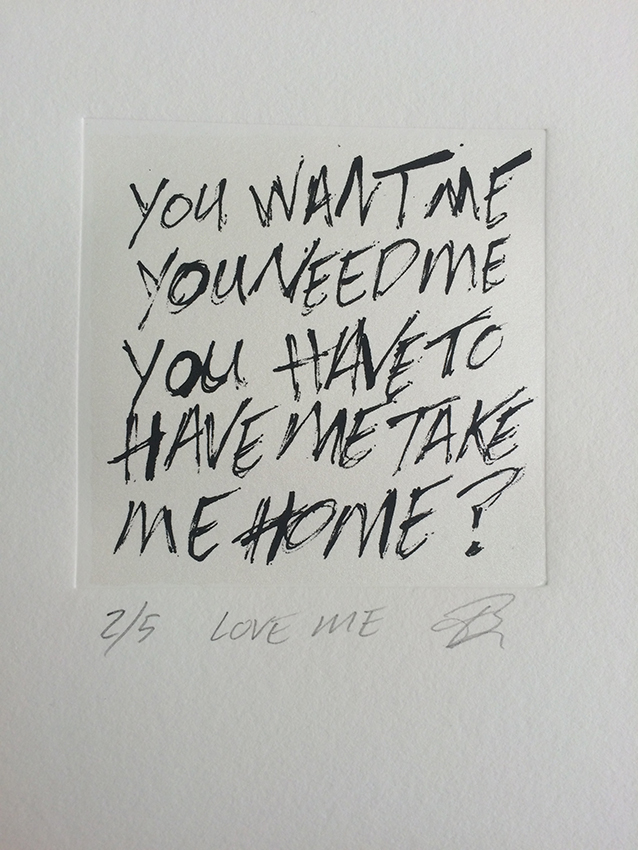 YOU WANT ME
YOU NEED ME
YOU HAVE TO
HAVE ME TAKE
ME HOME?
2/5 LOVE ME